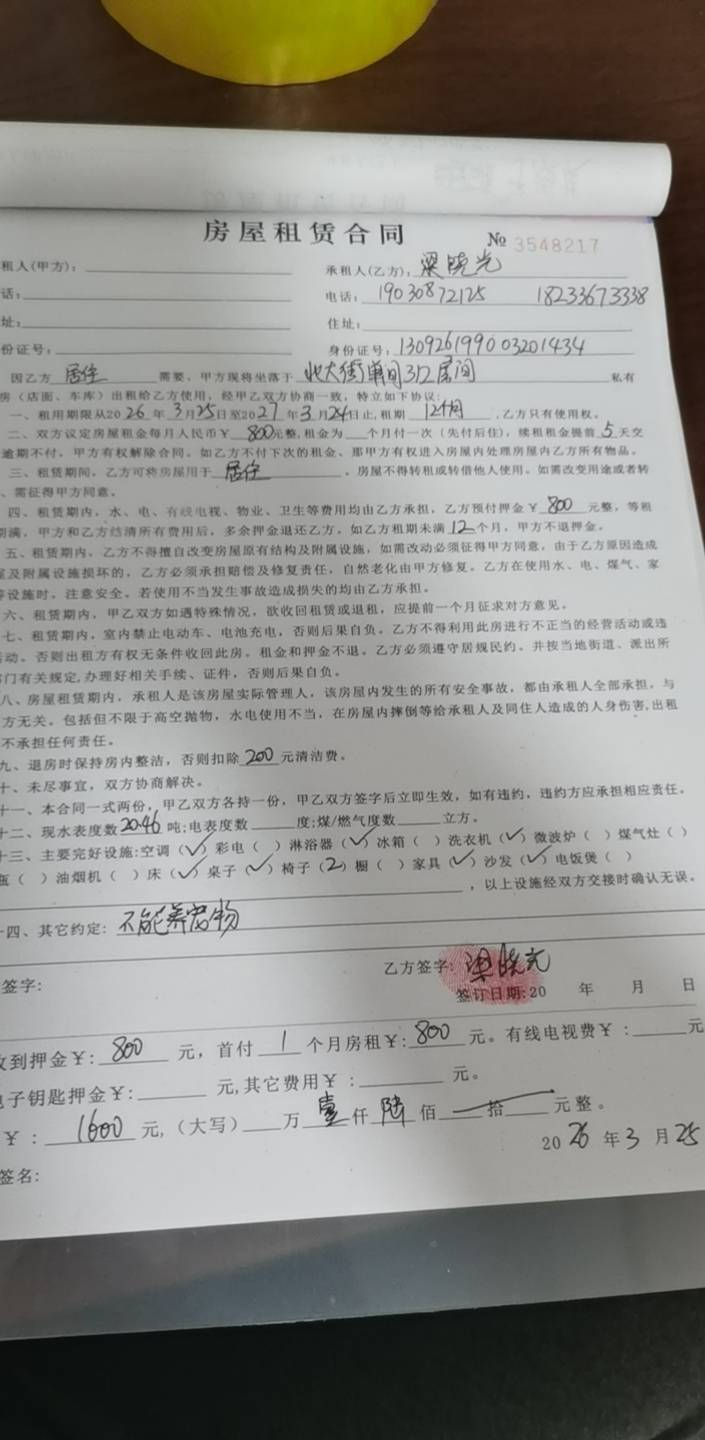 房屋租赁合同 № 3548217
租人(甲方): 承租人(乙方): 梁晓光
话: 电话: 19030872125 18233673338
址: 住址:
份证号: 身份证号: 130926199003201434
因乙方 居住 需要，甲方现将坐落于 北大街单间312房间 私有
房（店面、车库）出租给乙方使用，经甲乙双方协商一致，特立如下协议:
一、租用期限从2026年3月25日至2027年3月24日止,租期 12个月 ,乙方只有使用权。
二、双方议定房屋租金每月人民币￥ 800元整,租金为 个月付一次（先付后住），续租租金提前 5 天交
逾期不付，甲方有权解除合同。如乙方不付下次的租金、那甲方有权进入房屋内处理房屋内乙方所有物品。
三、租赁期间，乙方可将房屋用于 居住 。房屋不得转租或转借他人使用。如需改变用途或者转
、需征得甲方同意。
四、租赁期内，水、电、有线电视、物业、卫生等费用均由乙方承担，乙方预付押金￥ 800 元整，等租
期满，甲方和乙方结清所有费用后，多余押金退还乙方，如乙方租期未满 12 个月，甲方不退押金。
五、租赁期内，乙方不得擅自改变房屋原有结构及附属设施，如需改动必须征得甲方同意，由于乙方原因造成
屋及附属设施损坏的，乙方必须承担赔偿及修复责任，自然老化由甲方修复。乙方在使用水、电、煤气、家
等设施时，注意安全。若使用不当发生事故造成损失的均由乙方承担。
六、租赁期内，甲乙双方如遇特殊情况，欲收回租赁或退租，应提前一个月征求对方意见。
七、租赁期内，室内禁止电动车、电池充电，否则后果自负。乙方不得利用此房进行不正当的经营活动或违
活动。否则出租方有权无条件收回此房。租金和押金不退。乙方必须遵守居规民约。并按当地街道、派出所
部门有关规定,办理好相关手续、证件，否则后果自负。
八、房屋租赁期内，承租人是该房屋实际管理人，该房屋内发生的所有安全事故，都由承租人全部承担，与
方无关。包括但不限于高空抛物，水电使用不当，在房屋内摔倒等给承租人及同住人造成的人身伤害,出租
不承担任何责任。
九、退房时保持房内整洁，否则扣除 200 元清洁费。
十、未尽事宜，双方协商解决。
十一、本合同一式两份，甲乙双方各持一份，甲乙双方签字后立即生效，如有违约，违约方应承担相应责任。
十二、现水表度数 2046 吨;电表度数 度;煤/燃气度数 立方。
十三、主要完好设施:空调（√）彩电（ ）淋浴器（√）冰箱（ ）洗衣机（√）微波炉（ ）煤气灶（ ）
瓶（ ）油烟机（ ）床（√）桌子（√）椅子（2）橱（ ）家具（√）沙发（√）电饭煲（ ）
，以上设施经双方交接时确认无误。
十四、其它约定: 不能养宠物
签字: 乙方签字: 梁晓光
签订日期:20 年 月 日
收到押金￥: 800 元，首付 1 个月房租￥: 800 元。有线电视费￥: 元
电子钥匙押金￥: 元,其它费用￥: 元。
￥: 1600 元,（大写） 万 壹 仟 陆 佰 拾 元整。
2026年3月25
签名: